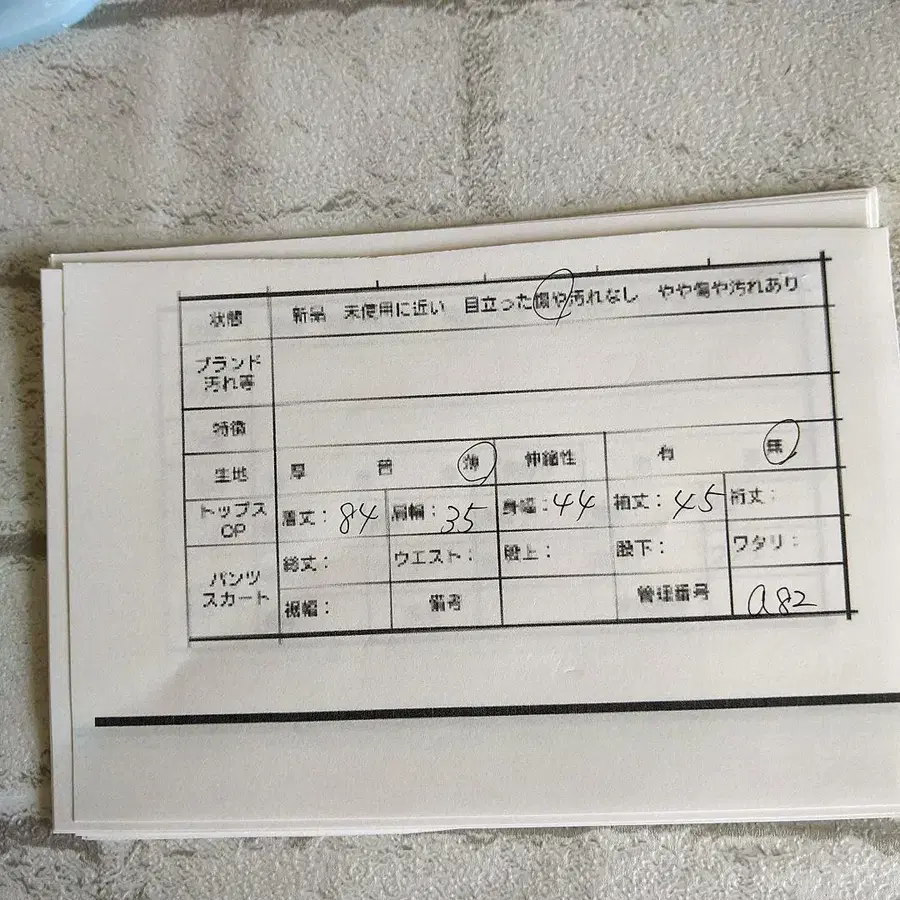 状態 新品 未使用に近い 目立った傷や汚れなし やや傷や汚れあり
ブランド
汚れ等
特徴
生地 厚 普 薄 伸縮性 有 無
トップス
OP
着丈：84 肩幅：35 身幅：44 袖丈：45 裄丈：
パンツ
スカート
総丈： ウエスト：股上： 股下： ワタリ：
裾幅： 備考 管理番号 a82